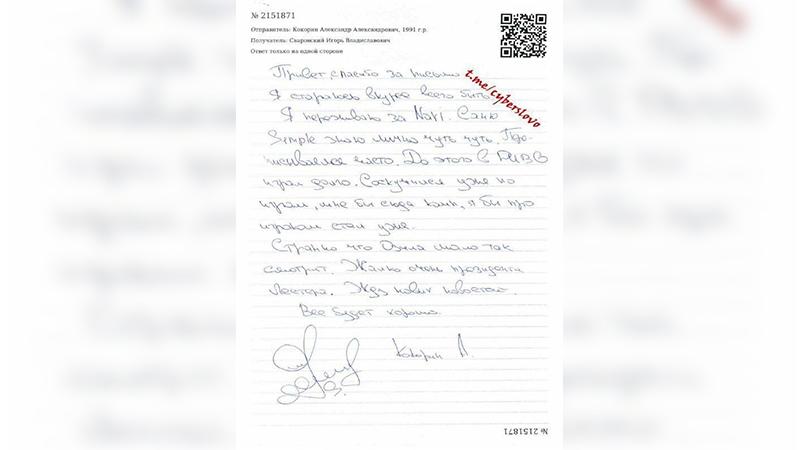 № 2151871
Отправитель: Кокорин Александр Александрович, 1991 г.р.
Получатель: Сваровский Игорь Владиславович
Ответ только на одной стороне
Привет, спасибо за письмо
t.me/cyberslovo
Я стараюсь вкурсе всего быть
Я переживаю за NaVi. Саню
Simple знаю лично чуть чуть. Пере-
писываемся часто. До этого в PUBG
играл долго. Соскучился уже по
играм, мне бы сюда комп, я бы про
игроком стал уже.
Странно что Озила мало так
смотрит. Жалко очень президента
Лестера. Жду новых новостей.
Все будет хорошо.
Кокорин А.
№ 2151871